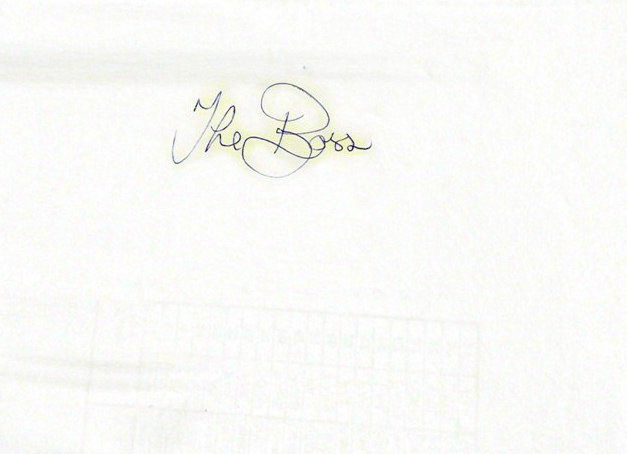 The Boss